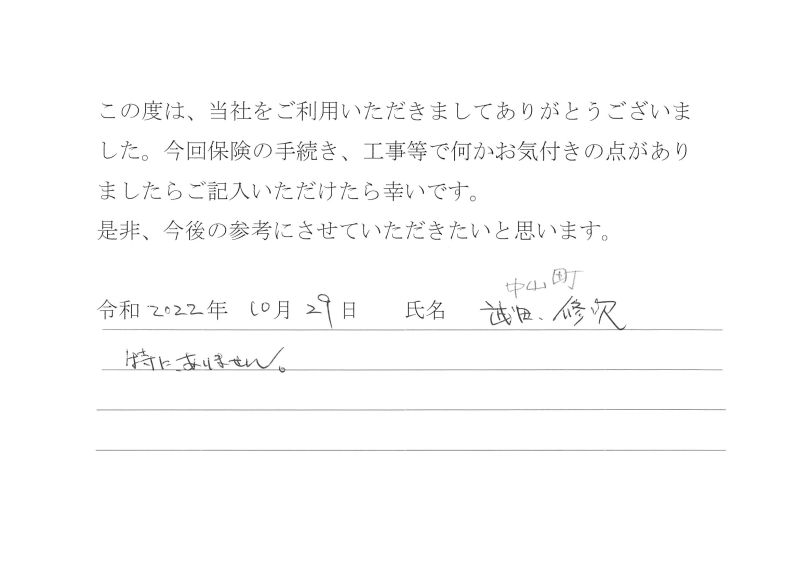 この度は、当社をご利用いただきましてありがとうございま
した。今回保険の手続き、工事等で何かお気付きの点があり
ましたらご記入いただけたら幸いです。
是非、今後の参考にさせていただきたいと思います。
中山町
令和 2022年 10月 29日 氏名 修次
特にありません。